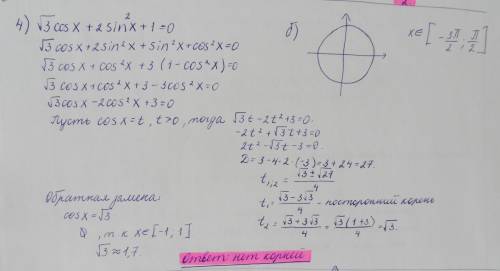 4) √3 cos x + 2 sin² x + 1 = 0
√3 cos x + 2 sin² x + sin² x + cos² x = 0
√3 cos x + cos² x + 3 (1 - cos² x) = 0
√3 cos x + cos² x + 3 - 3cos² x = 0
√3 cos x - 2cos² x + 3 = 0
Пусть cos x = t, t > 0, тогда √3 t - 2t² + 3 = 0
-2t² + √3 t + 3 = 0
2t² - √3 t - 3 = 0
D = 3 - 4·2·(-3) = 3 + 24 = 27
t₁,₂ = (√3 ± √27)/4
t₁ = (√3 - 3√3)/4 - посторонний корень
t₂ = (√3 + 3√3)/4 = √3(1+3)/4 = √3.
Обратная замена:
cos x = √3
, т к x ∈ [-1, 1]
√3 ≈ 1,7.
ответ: нет корней
б)
x ∈ [-3π/2; π/2]